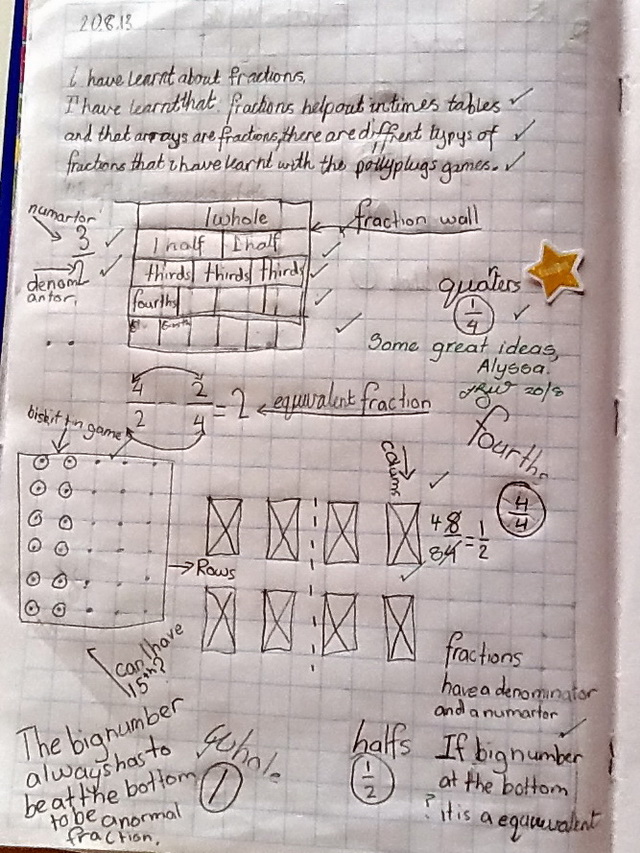 20.8.13
i have learnt about fractions.
I have learnt that fractions help out in times tables
and that arrays are fractions, there are diffrent typys of
fractions that i have learnt with the pollyplugs games.
numartor
3
2
denom
antor.
1 whole
1 half 1 half
thirds thirds thirds
fourths
fraction wall
quaters
1
4
Some great ideas,
Alyssa.
20/8
4 2
2 4
= 2
equivalent fraction
biskit tin game
fourths
4
4
colums
Rows
48
84
= 1
2
can I have
15th?
The big number
always has to
be at the bottom
to be a normal
fraction.
whole
1
halfs
1
2
fractions
have a denominator
and a numartor
If big number
at the bottom
? it is a equuvalent